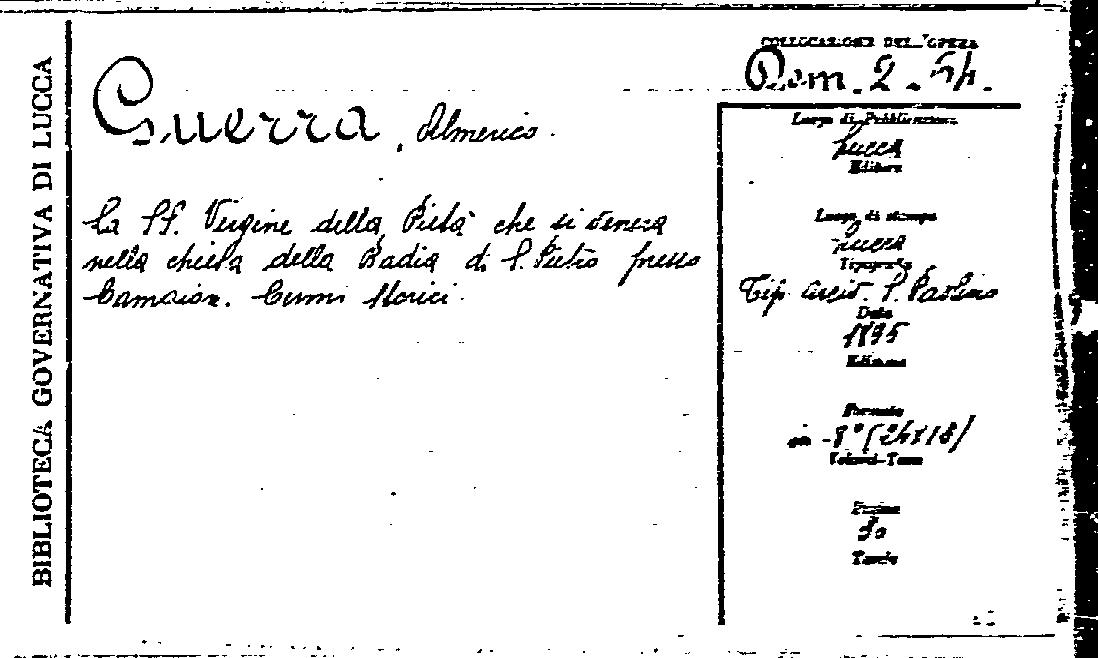 BIBLIOTECA GOVERNATIVA DI LUCCA
COLLOCAZIONE DELL'OPERA
Dom. 2. 54.
Guerra, Almerico.
La SS. Vergine della Pietà che si venera
nella chiesa della Badia di S. Pietro presso
Camaior. Cenni storici.
Luogo di Pubblicazione
Lucca
Editore
Luogo di stampa
Lucca
Tipografia
Tip. arciv. S. Paolino
Data
1895
Edizione
Formato
in -8° (24x18)
Volumi-Tomo
Pagine
Tavole